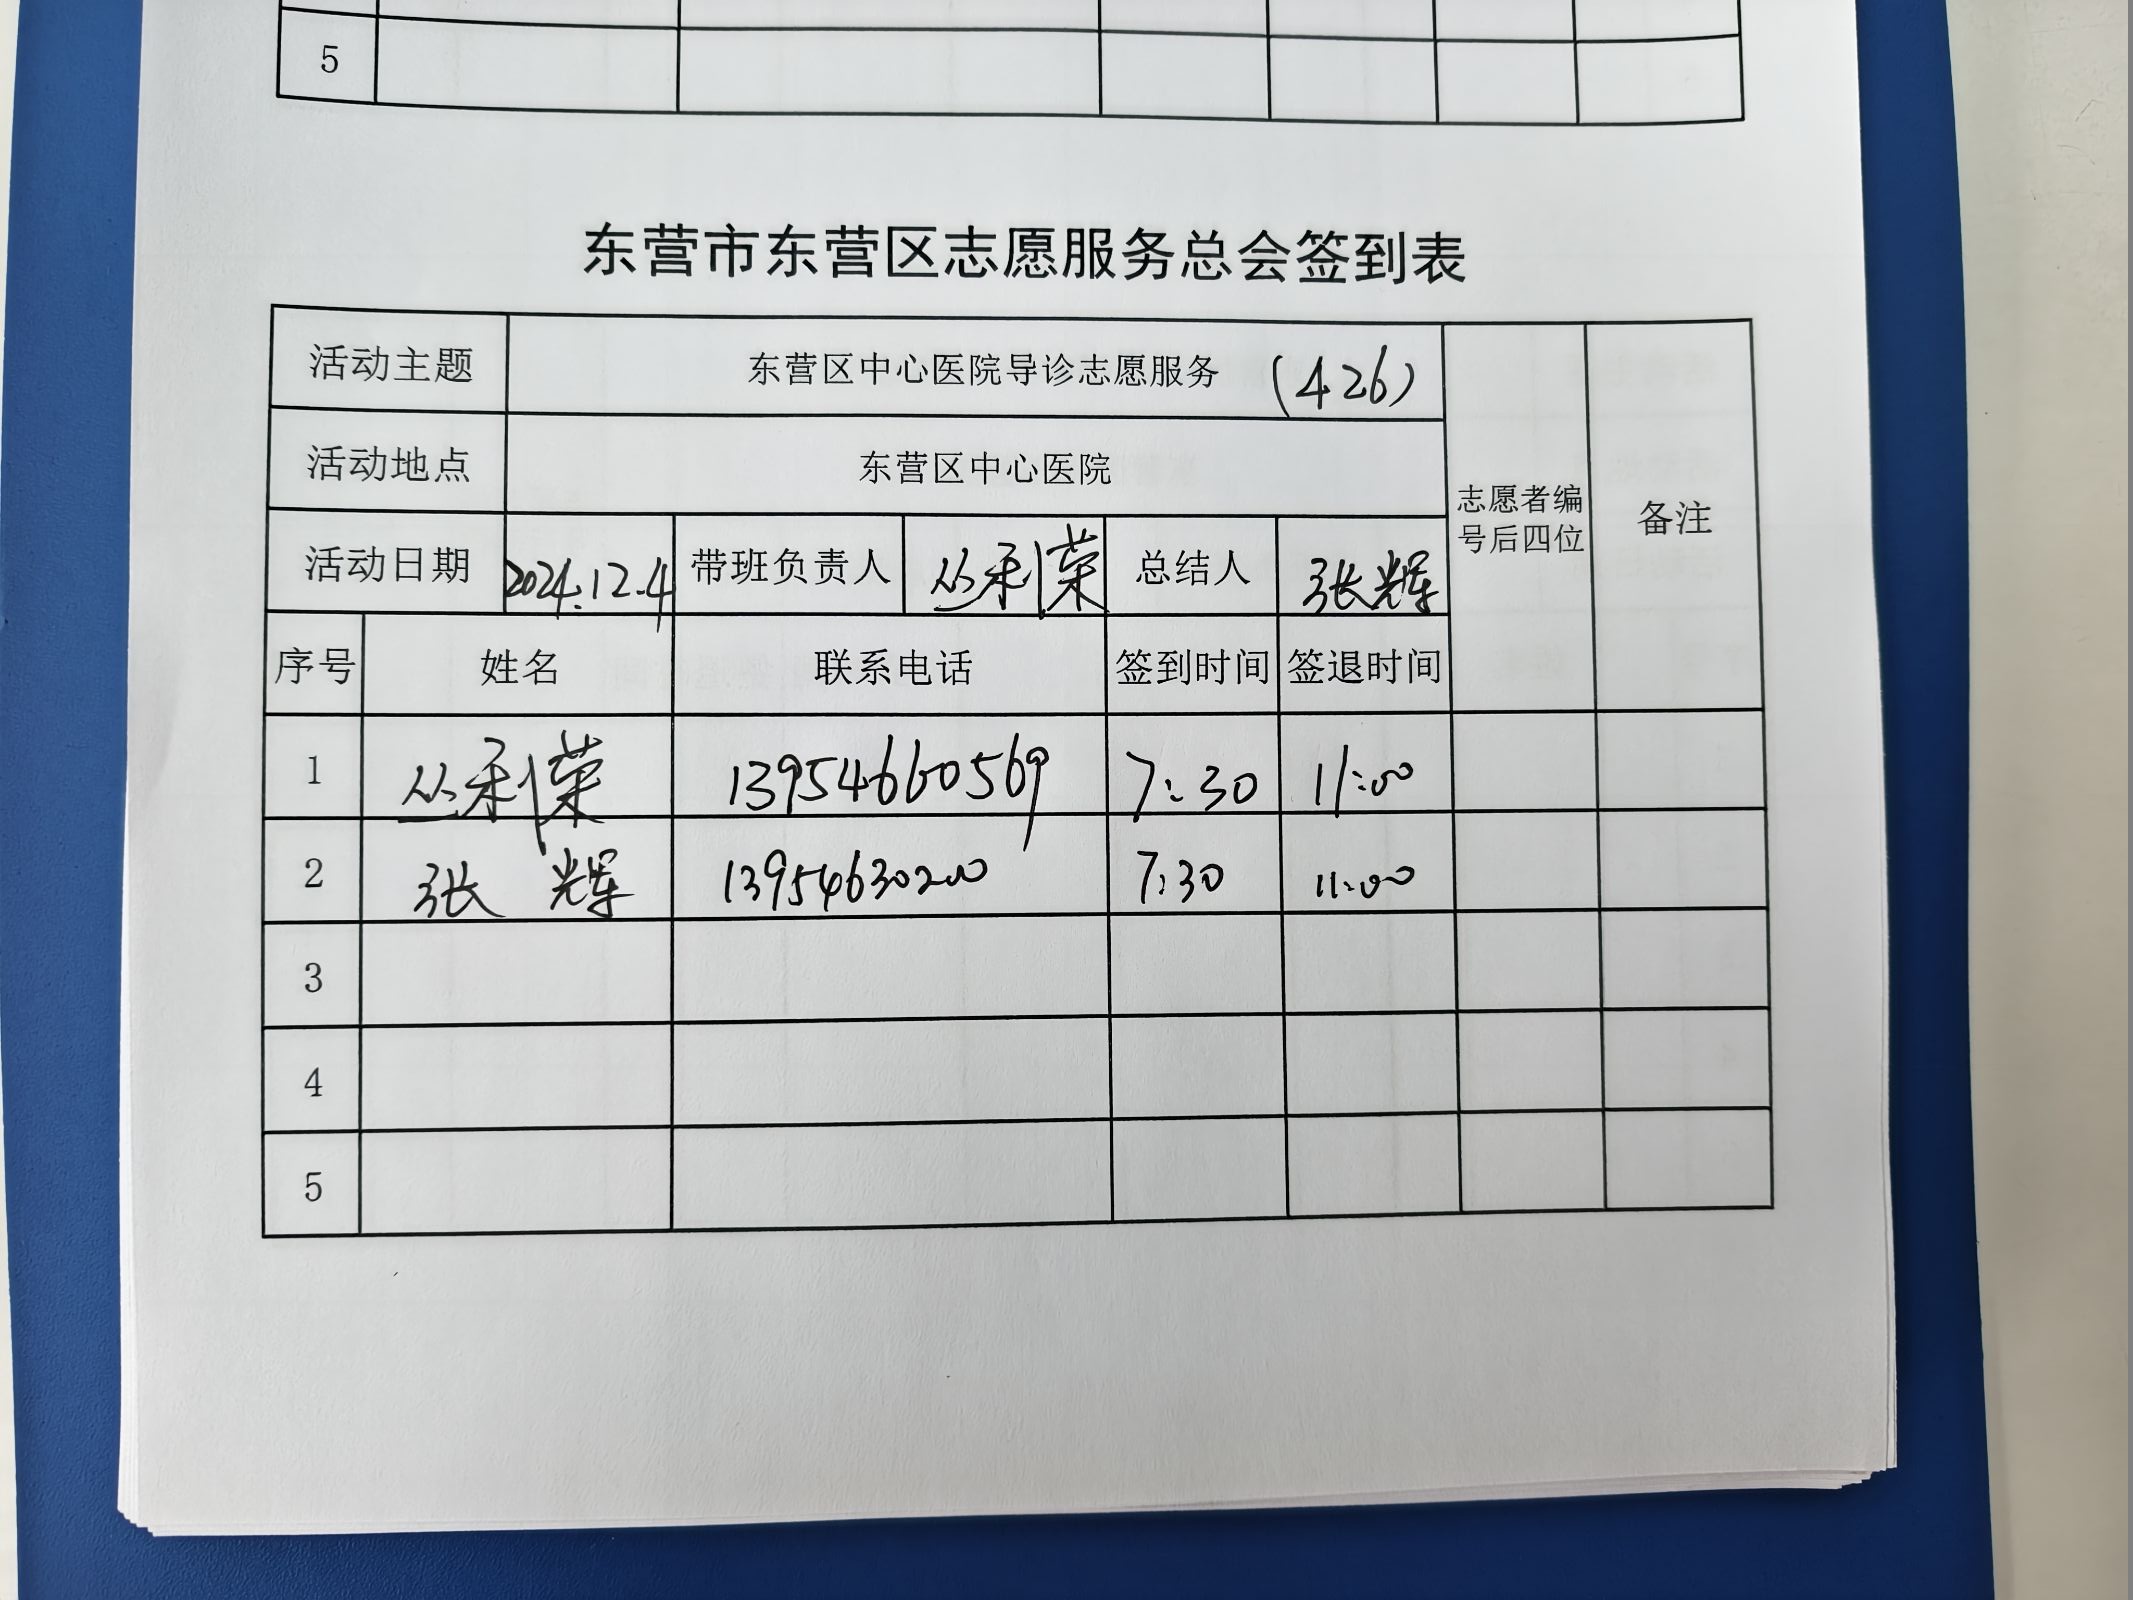 5
东营市东营区志愿服务总会签到表
活动主题 东营区中心医院导诊志愿服务 (426)
活动地点 东营区中心医院
志愿者编号后四位 备注
活动日期 2024.12.4 带班负责人 丛利荣 总结人 张辉
序号 姓名 联系电话 签到时间 签退时间
1 丛利荣 13954660569 7:30 11:00
2 张辉 13954630200 7:30 11:00
3
4
5